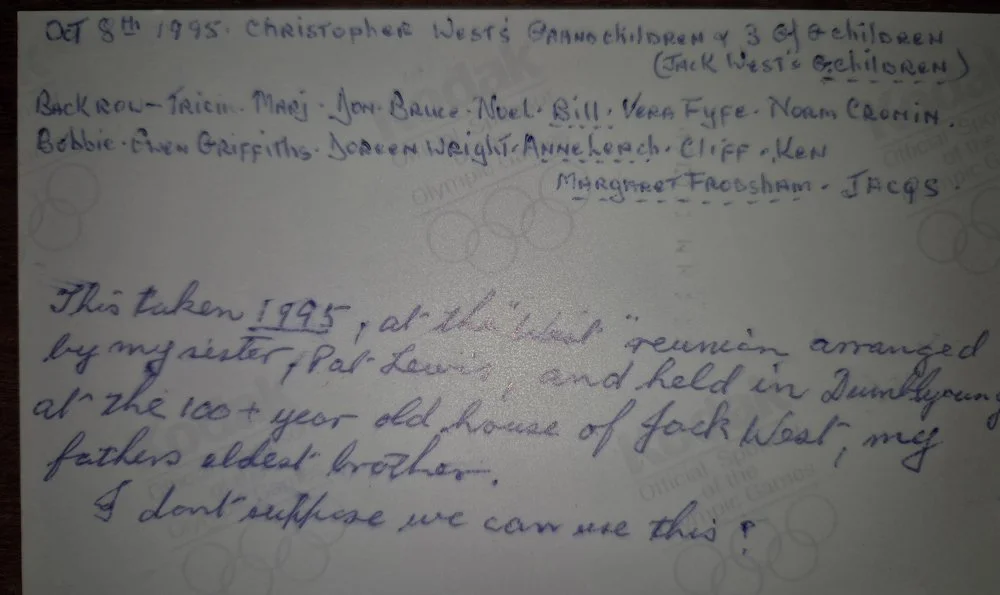 OCT 8TH 1995. CHRISTOPHER WEST'S GRANDCHILDREN & 3 G/GCHILDREN
(JACK WEST'S GCHILDREN)
BACK ROW - TRICIA. MARJ. DON. BRUCE. NOEL. BILL. VERA FYFE. NORM CRONIN.
BOBBIE. GWEN GRIFFITHS. DOREEN WRIGHT. ANNE LEACH. CLIFF. KEN
MARGARET FRODSHAM. JACQS.
This taken 1995, at the "West" reunion arranged
by my sister, Pat Lewis, and held in Dumbleyoung
at the 100+ year old house of Jack West, my
fathers eldest brother.
I dont suppose we can use this?
Kodak
Official Sponsor
of the
Olympic Games